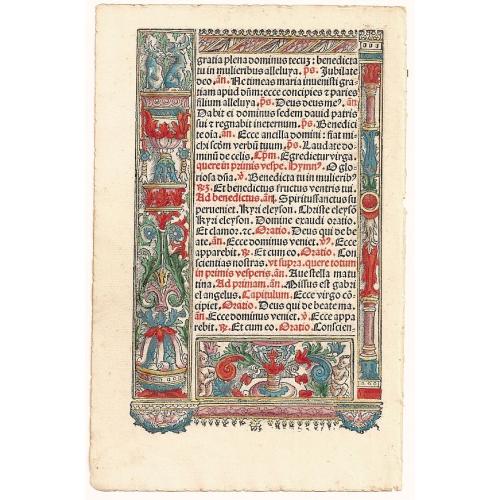 gratia plena dominus tecuʒ: benedicta
tu in mulieribus alleluya. p̄s. Jubilate
deo. añ. Ne timeas maria inuenisti gra-
tiam apud dñm: ecce concipies ⁊ paries
filium alleluya. p̄s. Deus deus meꝰ. añ.
Dabit ei dominus sedem dauid patris
sui ⁊ regnabit ineternum. p̄s. Benedici
te oīa. añ. Ecce ancilla domini: fiat mi
chi scd̄m verbū tuum. p̄s. Laudate do-
minū de celis. Cpm̄. Egredietur virga.
quere in primis vespe. Hymnꝰ. O glo
riosa dña. v̄. Benedicta tu in mulieribꝰ
Et benedictus fructus ventris tui.
Ad benedictus. añ. Spiritussanctus su
perueniet. Kyri eleyson. Christe eleysō
Kyri eleyson. Domine exaudi oratio.
Et clamor. ⁊c. Oratio. Deus qui de be
ate. añ. Ecce dominus veniet. Ecce
apparebit. Et cum eo. Oratio. Con
scientias nostras. vt supra. quere totum
in primis vesperis. añ. Aue stella matu
tina. Ad primam. añ. Missus est gabri
el angelus. Capitulum. Ecce virgo cō
cipiet. Oratio. Deus qui de beate ma.
añ. Ecce dominus veniet. v̄. Ecce appa
rebit. Et cum eo. Oratio. Conscien-